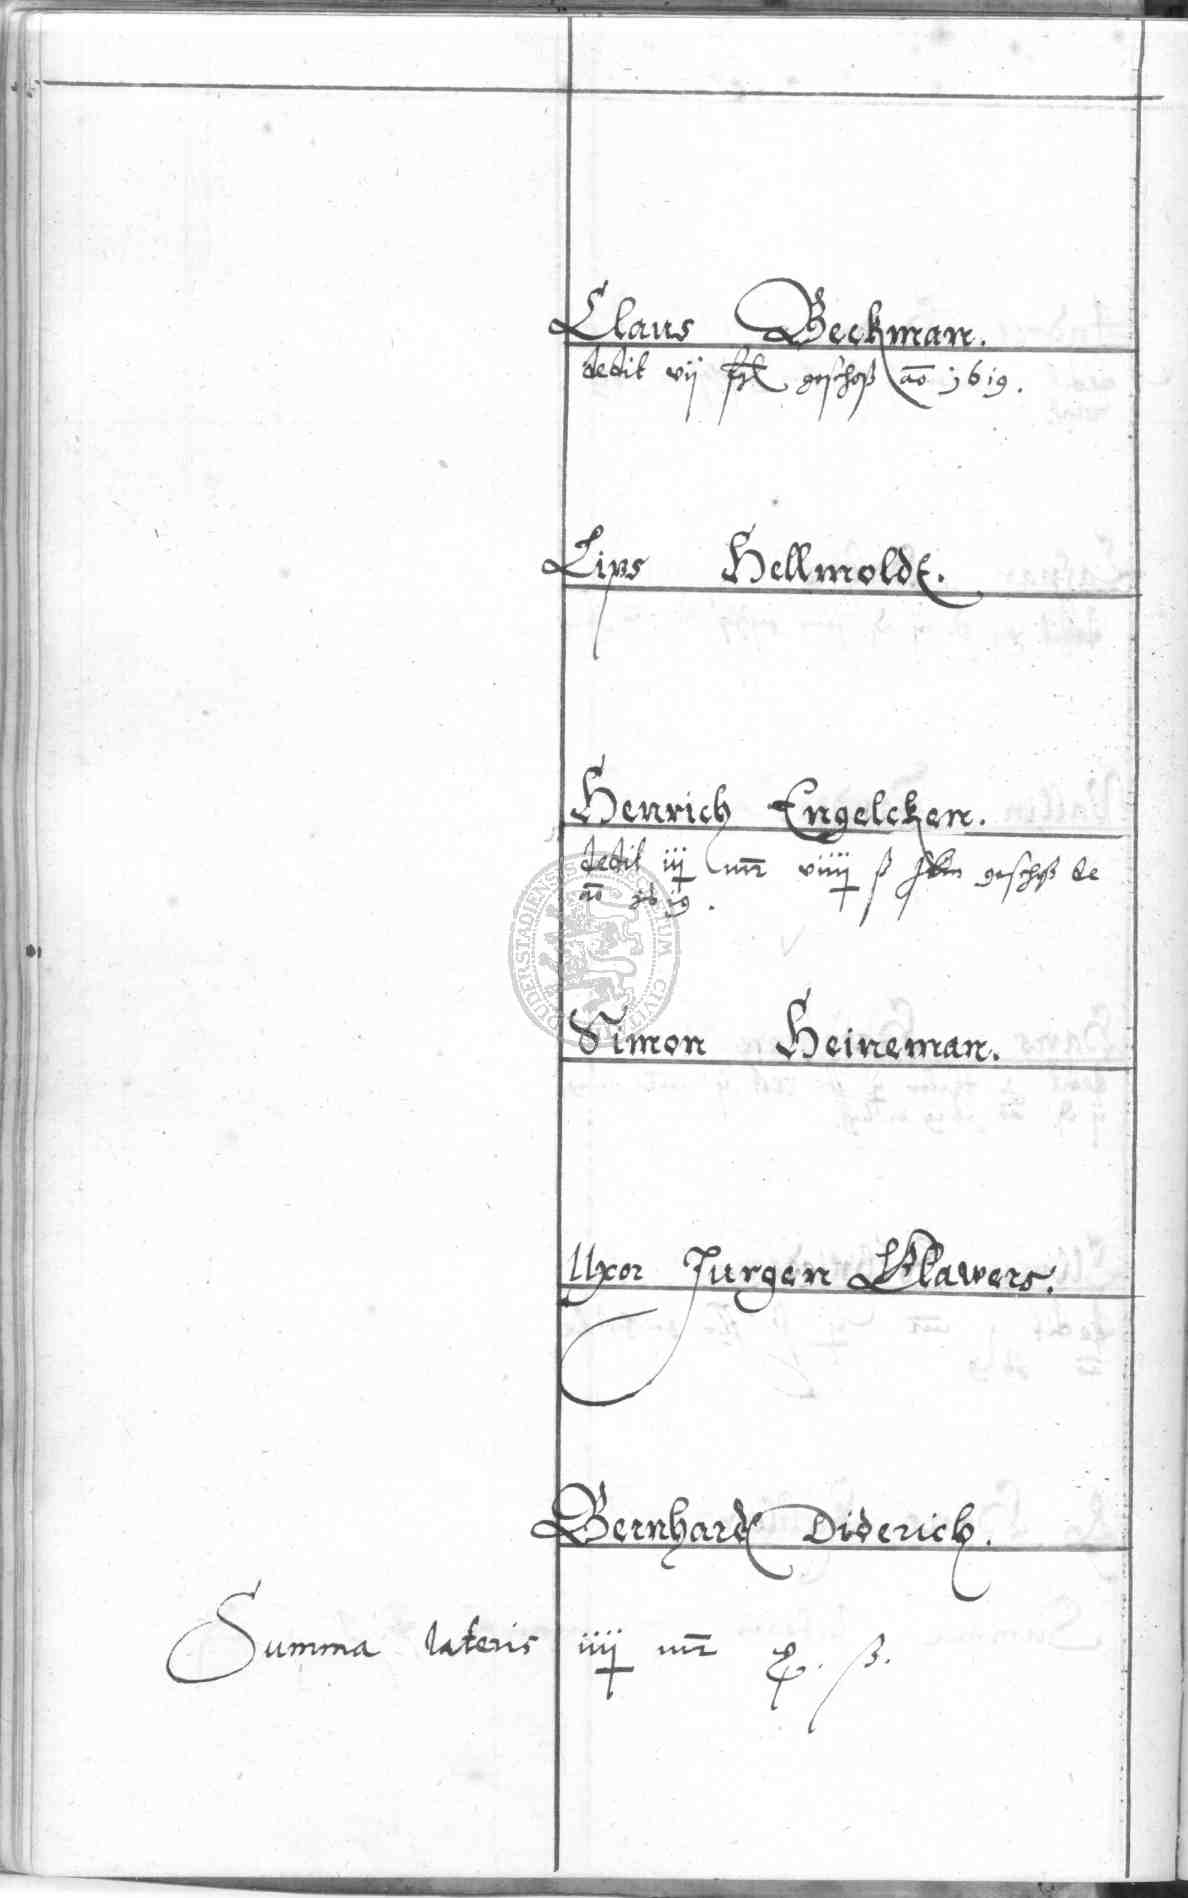 Claus Beckman.
dedit vij geschoß ao 1619.
Lips Hellmoldt.
Henrich Engelcken.
dedit iiij mr viiij ß geschoß de
ao 1619.
Simon Heineman.
Uxor Jurgen Klawers.
Bernhardt Diderich.
Summa lateris iiiij mr ß.